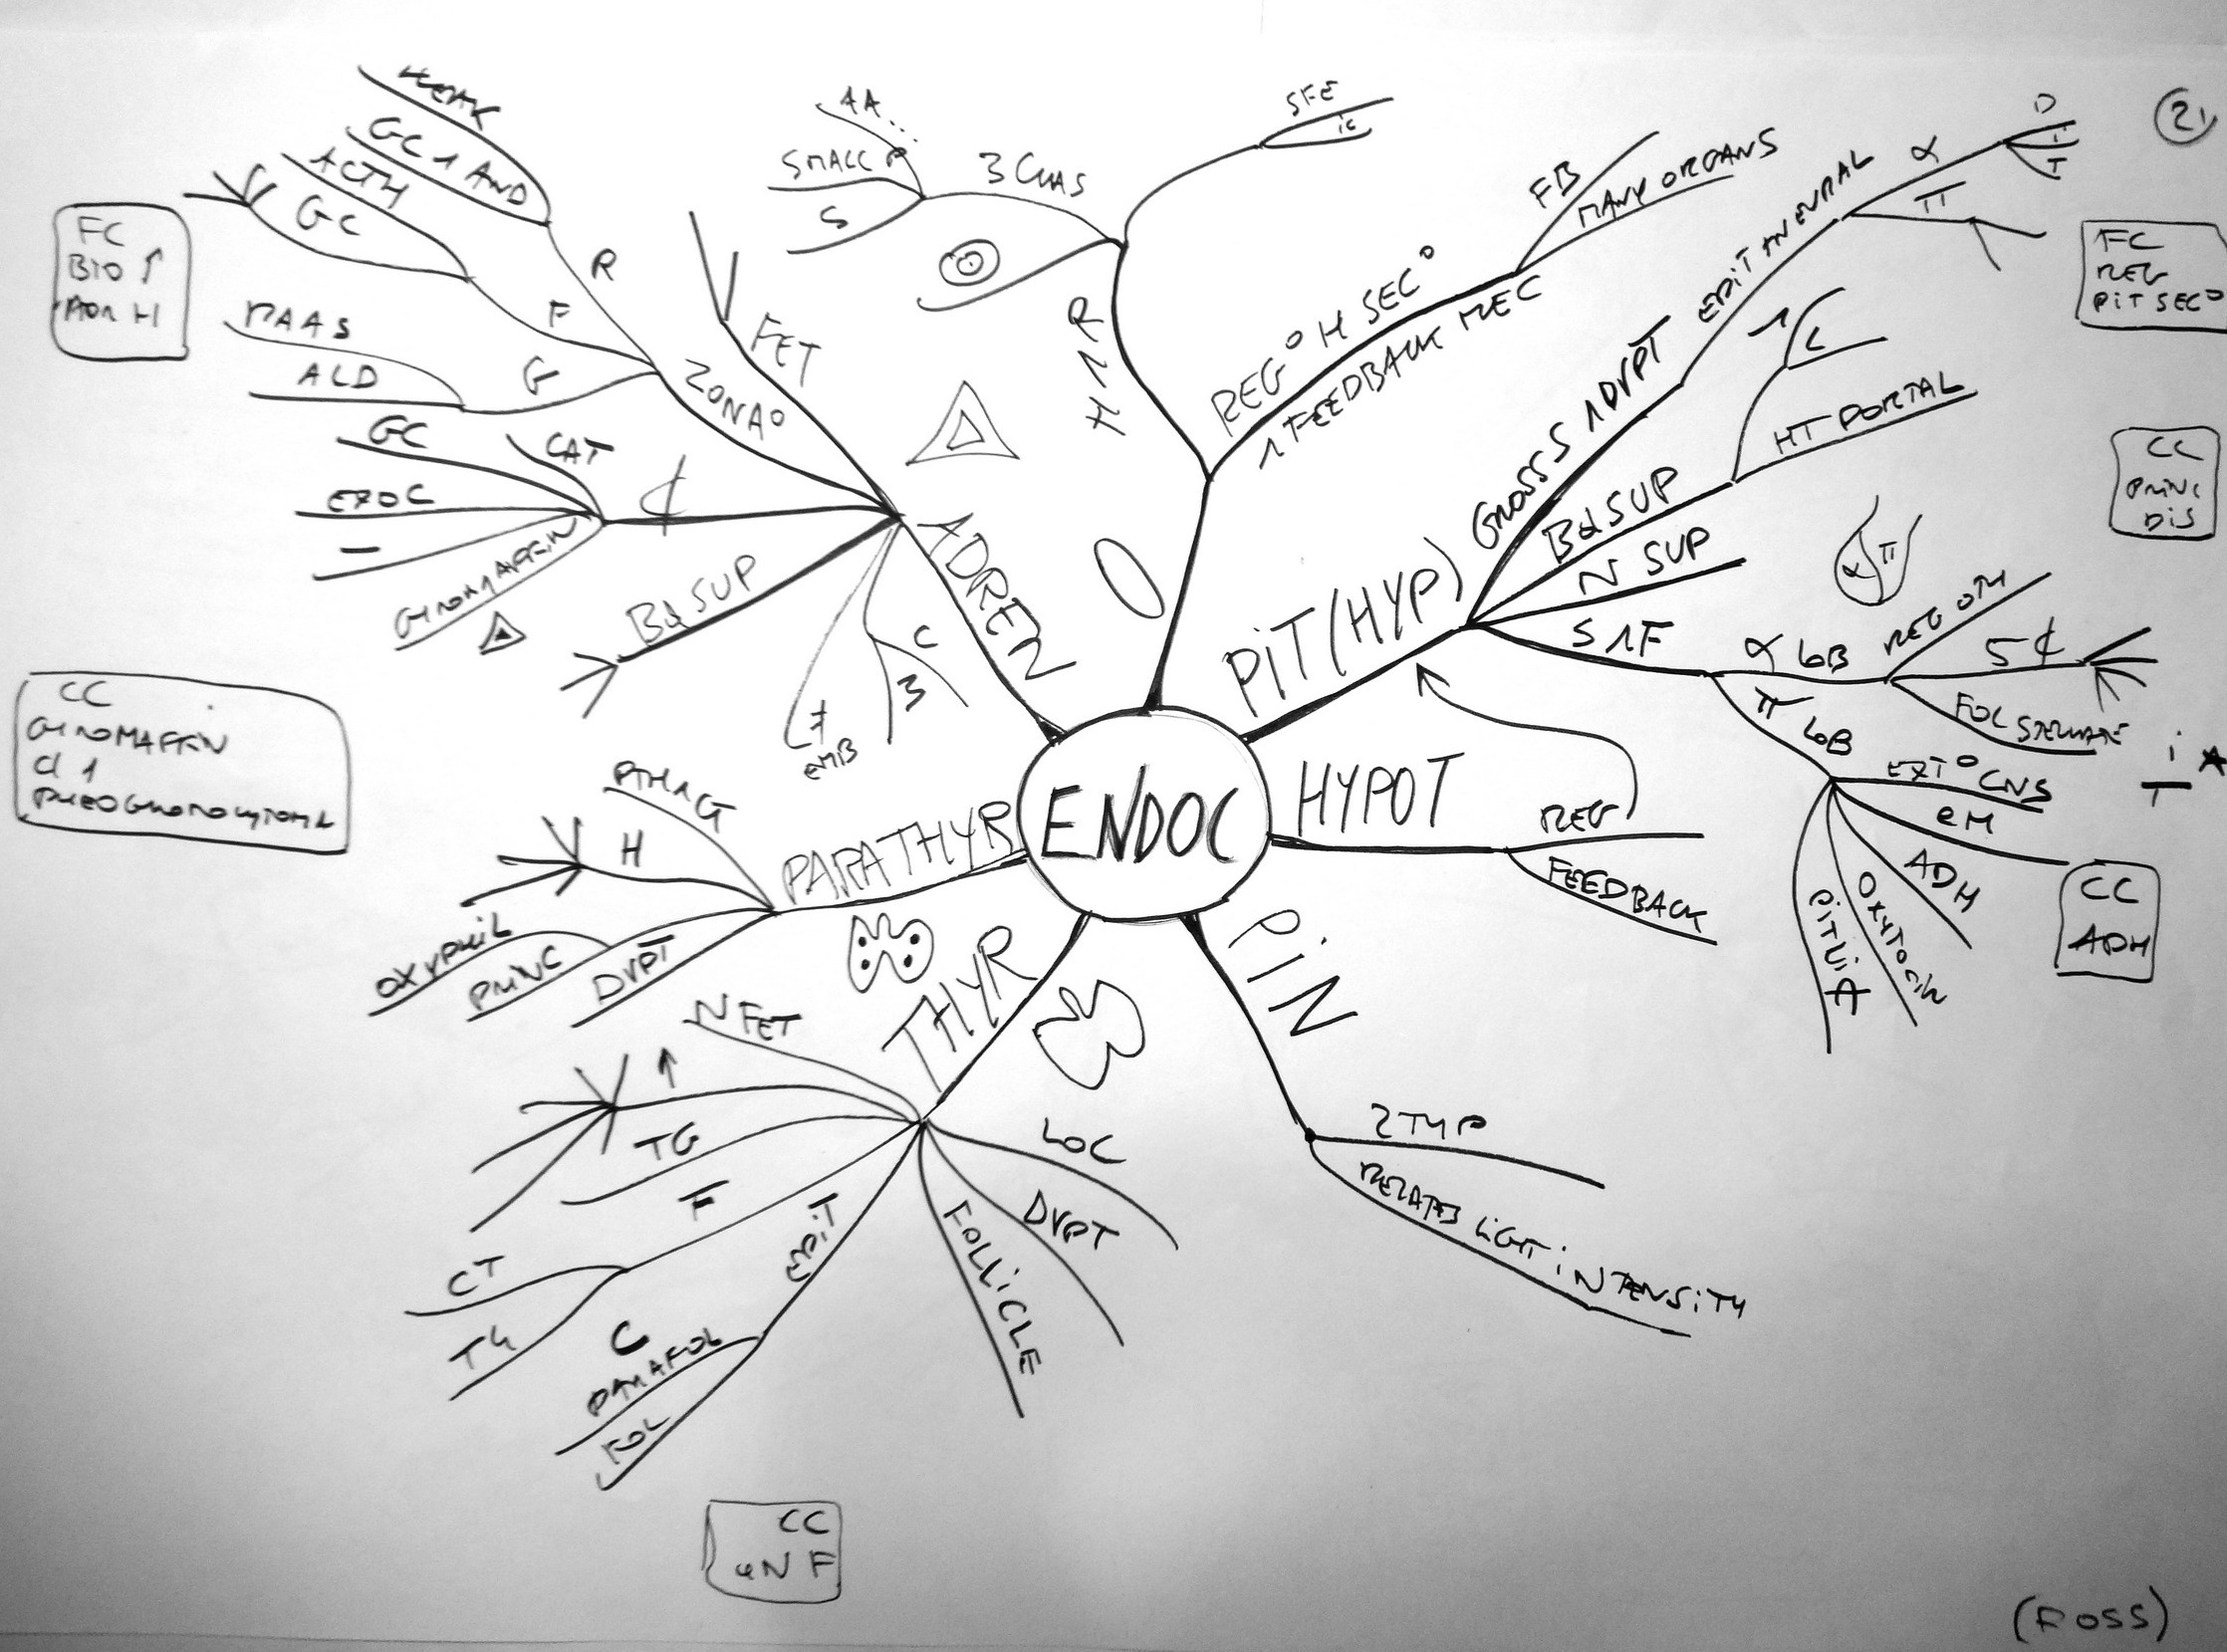 21
AA...
SMALL P
S
3 CLAS
SFE
ic
R
H
REG° H SEC°
1 FEEDBACK MEC
FB
MANY ORGANS
GROSS 1 DVPT
EPIT 1 NEURAL
α
D
i
T
π
Bd SUP
L
HT PORTAL
N SUP
S 1 F
α LOB
REG OTH
5 ¢
FOL STELLATE
π LOB
EXT° CNS
eM
ADH
OXYTOCIN
PITUIA
α
π
i
T
FC
REG
PIT SEC°
CC
PRINC
DIS
CC
ADH
PIT (HYP)
HYPOT
REG
FEEDBACK
PIN
2 TYP
RELATES LIGHT INTENSITY
ENDOC
ADREN
FET
ZONA°
R
WEAK
GC 1 AND
F
ACTH
GC
G
RAAS
ALD
¢
CAT
GC
EPOC
CHROMAFFIN
Bd SUP
C
3
7
EMB
FC
BIO ↑
ADR H
CC
CHROMAFFIN
Cl 1
PHEOCHROMOCYTOMA
PARATHYR
PTH 1 GT
H
DVPT
PRINC
OXYPHIL
THYR
N FET
↑
TG
F
CT
T4
EPIT
C
PARAFOL
FOL
FOLLICLE
DVPT
LOC
CC
aN F
(ROSS)